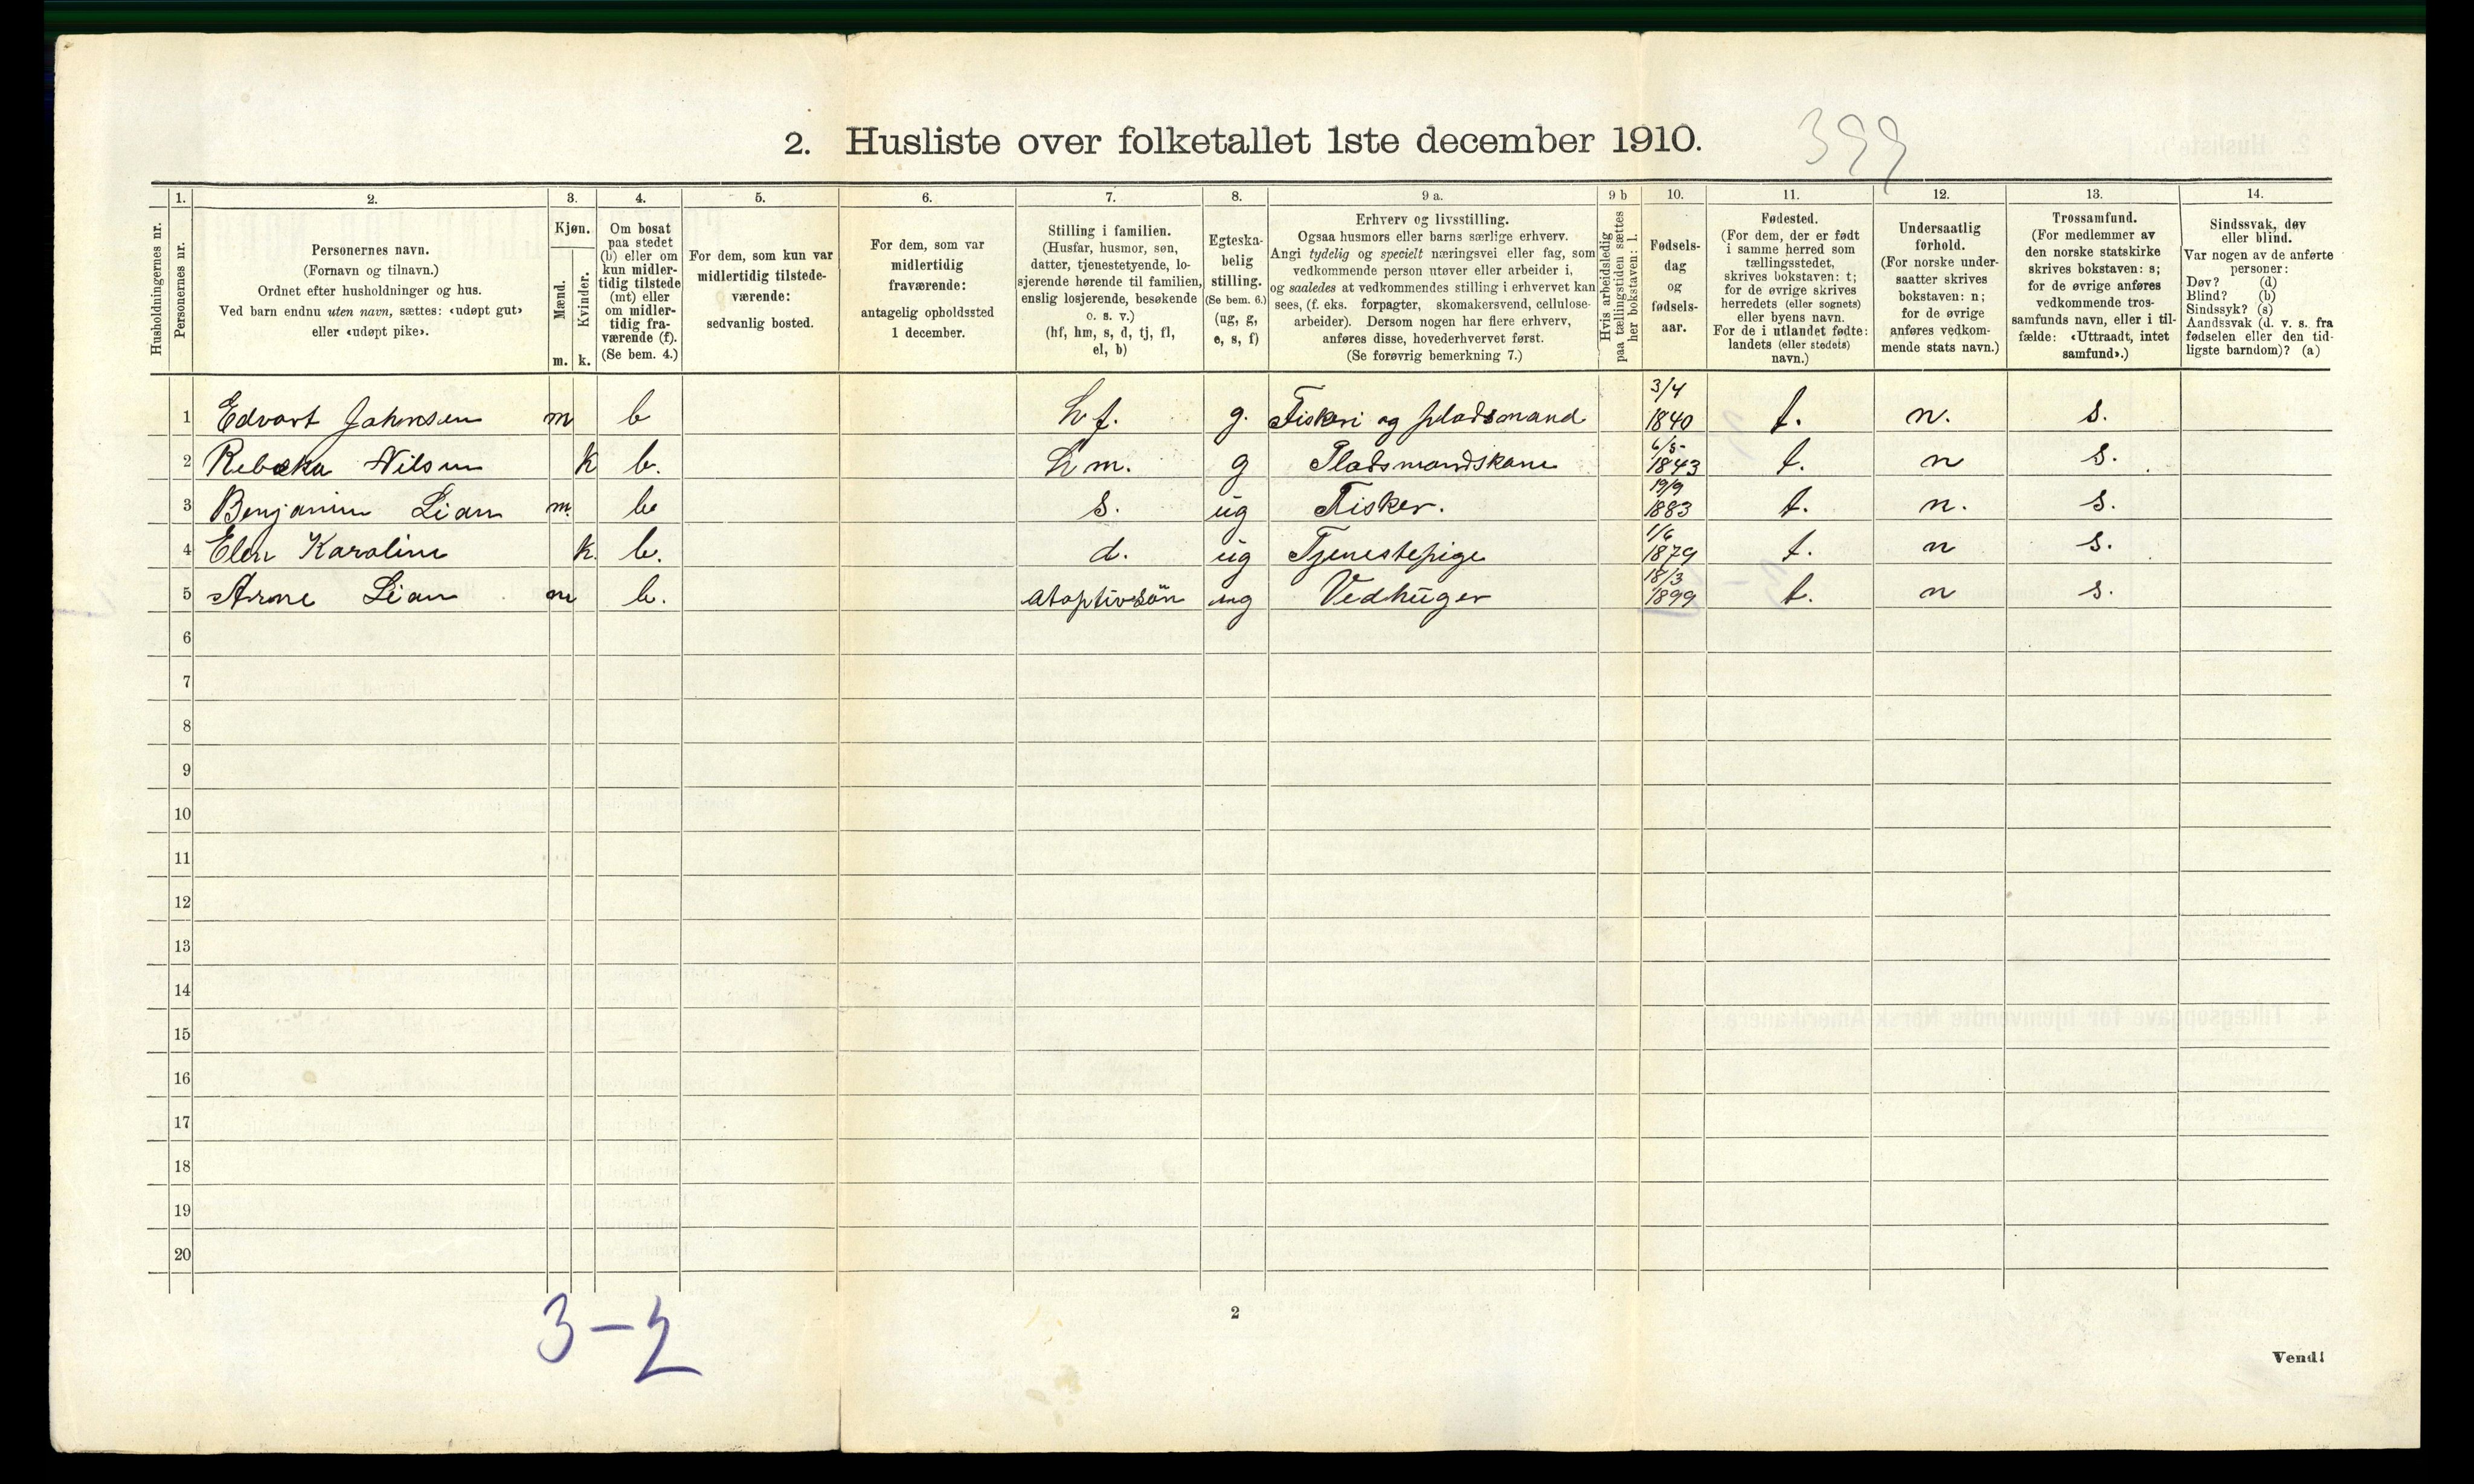 399
2. Husliste over folketallet 1ste december 1910.
Husholdningernes nr.
1.
Personernes nr.
2.
Personernes navn.
(Fornavn og tilnavn.)
Ordnet efter husholdninger og hus.
Ved barn endnu uten navn, sættes: «udøpt gut»
eller «udøpt pike».
3.
Kjøn.
Mænd.
Kvinder.
m. k.
4.
Om bosat
paa stedet
(b) eller om
kun midler-
tidig tilstede
(mt) eller
om midler-
tidig fra-
værende (f).
(Se bem. 4.)
5.
For dem, som kun var
midlertidig tilstede-
værende:
sedvanlig bosted.
6.
For dem, som var
midlertidig
fraværende:
antagelig opholdssted
1 december.
7.
Stilling i familien.
(Husfar, husmor, søn,
datter, tjenestetyende, lo-
sjerende hørende til familien,
enslig losjerende, besøkende
o. s. v.)
(hf, hm, s, d, tj, fl,
el, b)
8.
Egteska-
belig
stilling.
(Se bem. 6.)
(ug, g,
e, s, f)
9 a.
Erhverv og livsstilling.
Ogsaa husmors eller barns særlige erhverv.
Angi tydelig og specielt næringsvei eller fag, som
vedkommende person utøver eller arbeider i,
og saaledes at vedkommendes stilling i erhvervet kan
sees, (f. eks. forpagter, skomakersvend, cellulose-
arbeider). Dersom nogen har flere erhverv,
anføres disse, hovederhvervet først.
(Se forøvrig bemerkning 7.)
9 b
Hvis arbeidsledig
paa tællingstiden sættes
her bokstaven: l.
10.
Fødsels-
dag
og
fødsels-
aar.
11.
Fødested.
(For dem, der er født
i samme herred som
tællingsstedet,
skrives bokstaven: t;
for de øvrige skrives
herredets (eller sognets)
eller byens navn.
For de i utlandet fødte:
landets (eller stedets)
navn.)
12.
Undersaatlig
forhold.
(For norske under-
saatter skrives
bokstaven: n;
for de øvrige
anføres vedkom-
mende stats navn.)
13.
Trossamfund.
(For medlemmer av
den norske statskirke
skrives bokstaven: s;
for de øvrige anføres
vedkommende tros-
samfunds navn, eller i til-
fælde: «Uttraadt, intet
samfund».)
14.
Sindssvak, døv
eller blind.
Var nogen av de anførte
personer:
Døv? (d)
Blind? (b)
Sindssyk? (s)
Aandssvak (d. v. s. fra
fødselen eller den tid-
ligste barndom)? (a)
1 Edvart Johnsen m b hf. g. Fiskeri og pladsmand 3/4 1840 t. n. s.
2 Rebeka Nilsen k b. hm. g Pladsmandskone 6/5 1843 t. n s.
3 Benjamin Lian m. b s. ug Fisker. 19/9 1883 t. n. s.
4 Elen Karoline k. b. d. ug Tjenestepige 1/6 1879 t. n s.
5 Arne Lian m b. atoptivsön ug Vedhuger 18/3 1899 t. n s.
6
7
8
9
10
11
12
13
14
15
16
17
18
19
20
3-2
2
Vend!